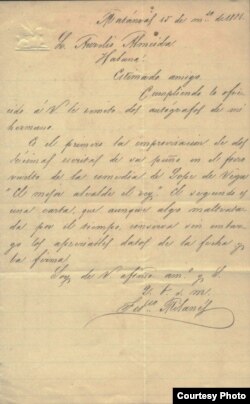 Matanzas 15 de mzo. de 1881
Sr. Aurelio Almeida
Habana
Estimado amigo
Cumpliendo lo ofre-
cido á V le remito dos autógrafos de mi
hermano.
Es el primero la improvisacion de dos
décimas escritas de su puño en el forro
vuelto de la comedia de Lope de Vega
"El mejor alcalde el rey," El segundo es
una carta, que aunque algo maltrata-
da por el tiempo, conserva sin embar-
go los apreciables datos de la fecha y
la firma.
Soy de V afmo amo. y S.
Q. B. S. M.
Fedco. Milanés
Courtesy Photo